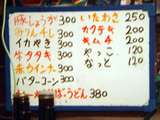 豚しょうが 300
みりん干し 300
イカやき 300
牛タタキ 300
赤ウインナー 300
バターコーン 300
うどん 380
いたわさ 250
カクテキ 200
キムチ 200
やっこ 120
なっと 120